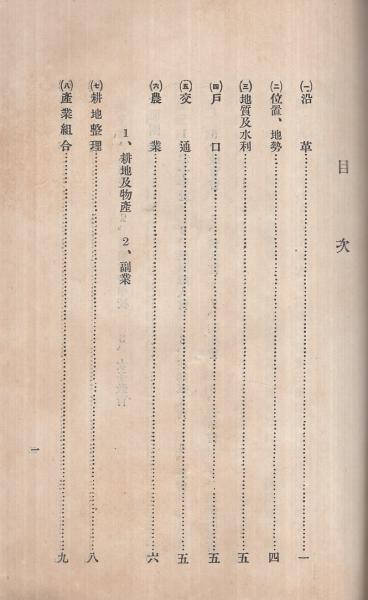 目次
㈠沿革……一
㈡位置、地勢……四
㈢地質及水利……五
㈣戶口……五
㈤交通……五
㈥農業……六
1、耕地及物產 2、副業
㈦耕地整理……八
㈧產業組合……九
一